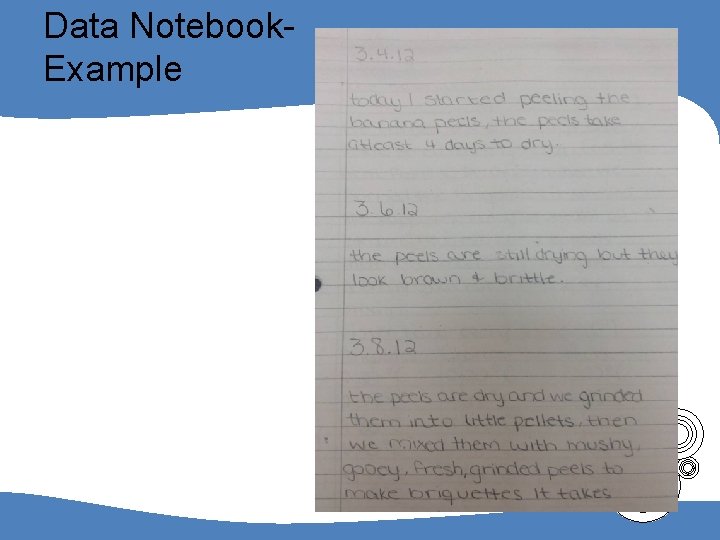 Data Notebook-
Example
3.4.12
today I started peeling the
banana peels, the peels take
atleast 4 days to dry.
3.6.12
the peels are still drying but they
look brown & brittle.
3.8.12
the peels are dry and we grinded
them into little pellets, then
we mixed them with mushy,
gooey, fresh, grinded peels to
make briquettes. It takes